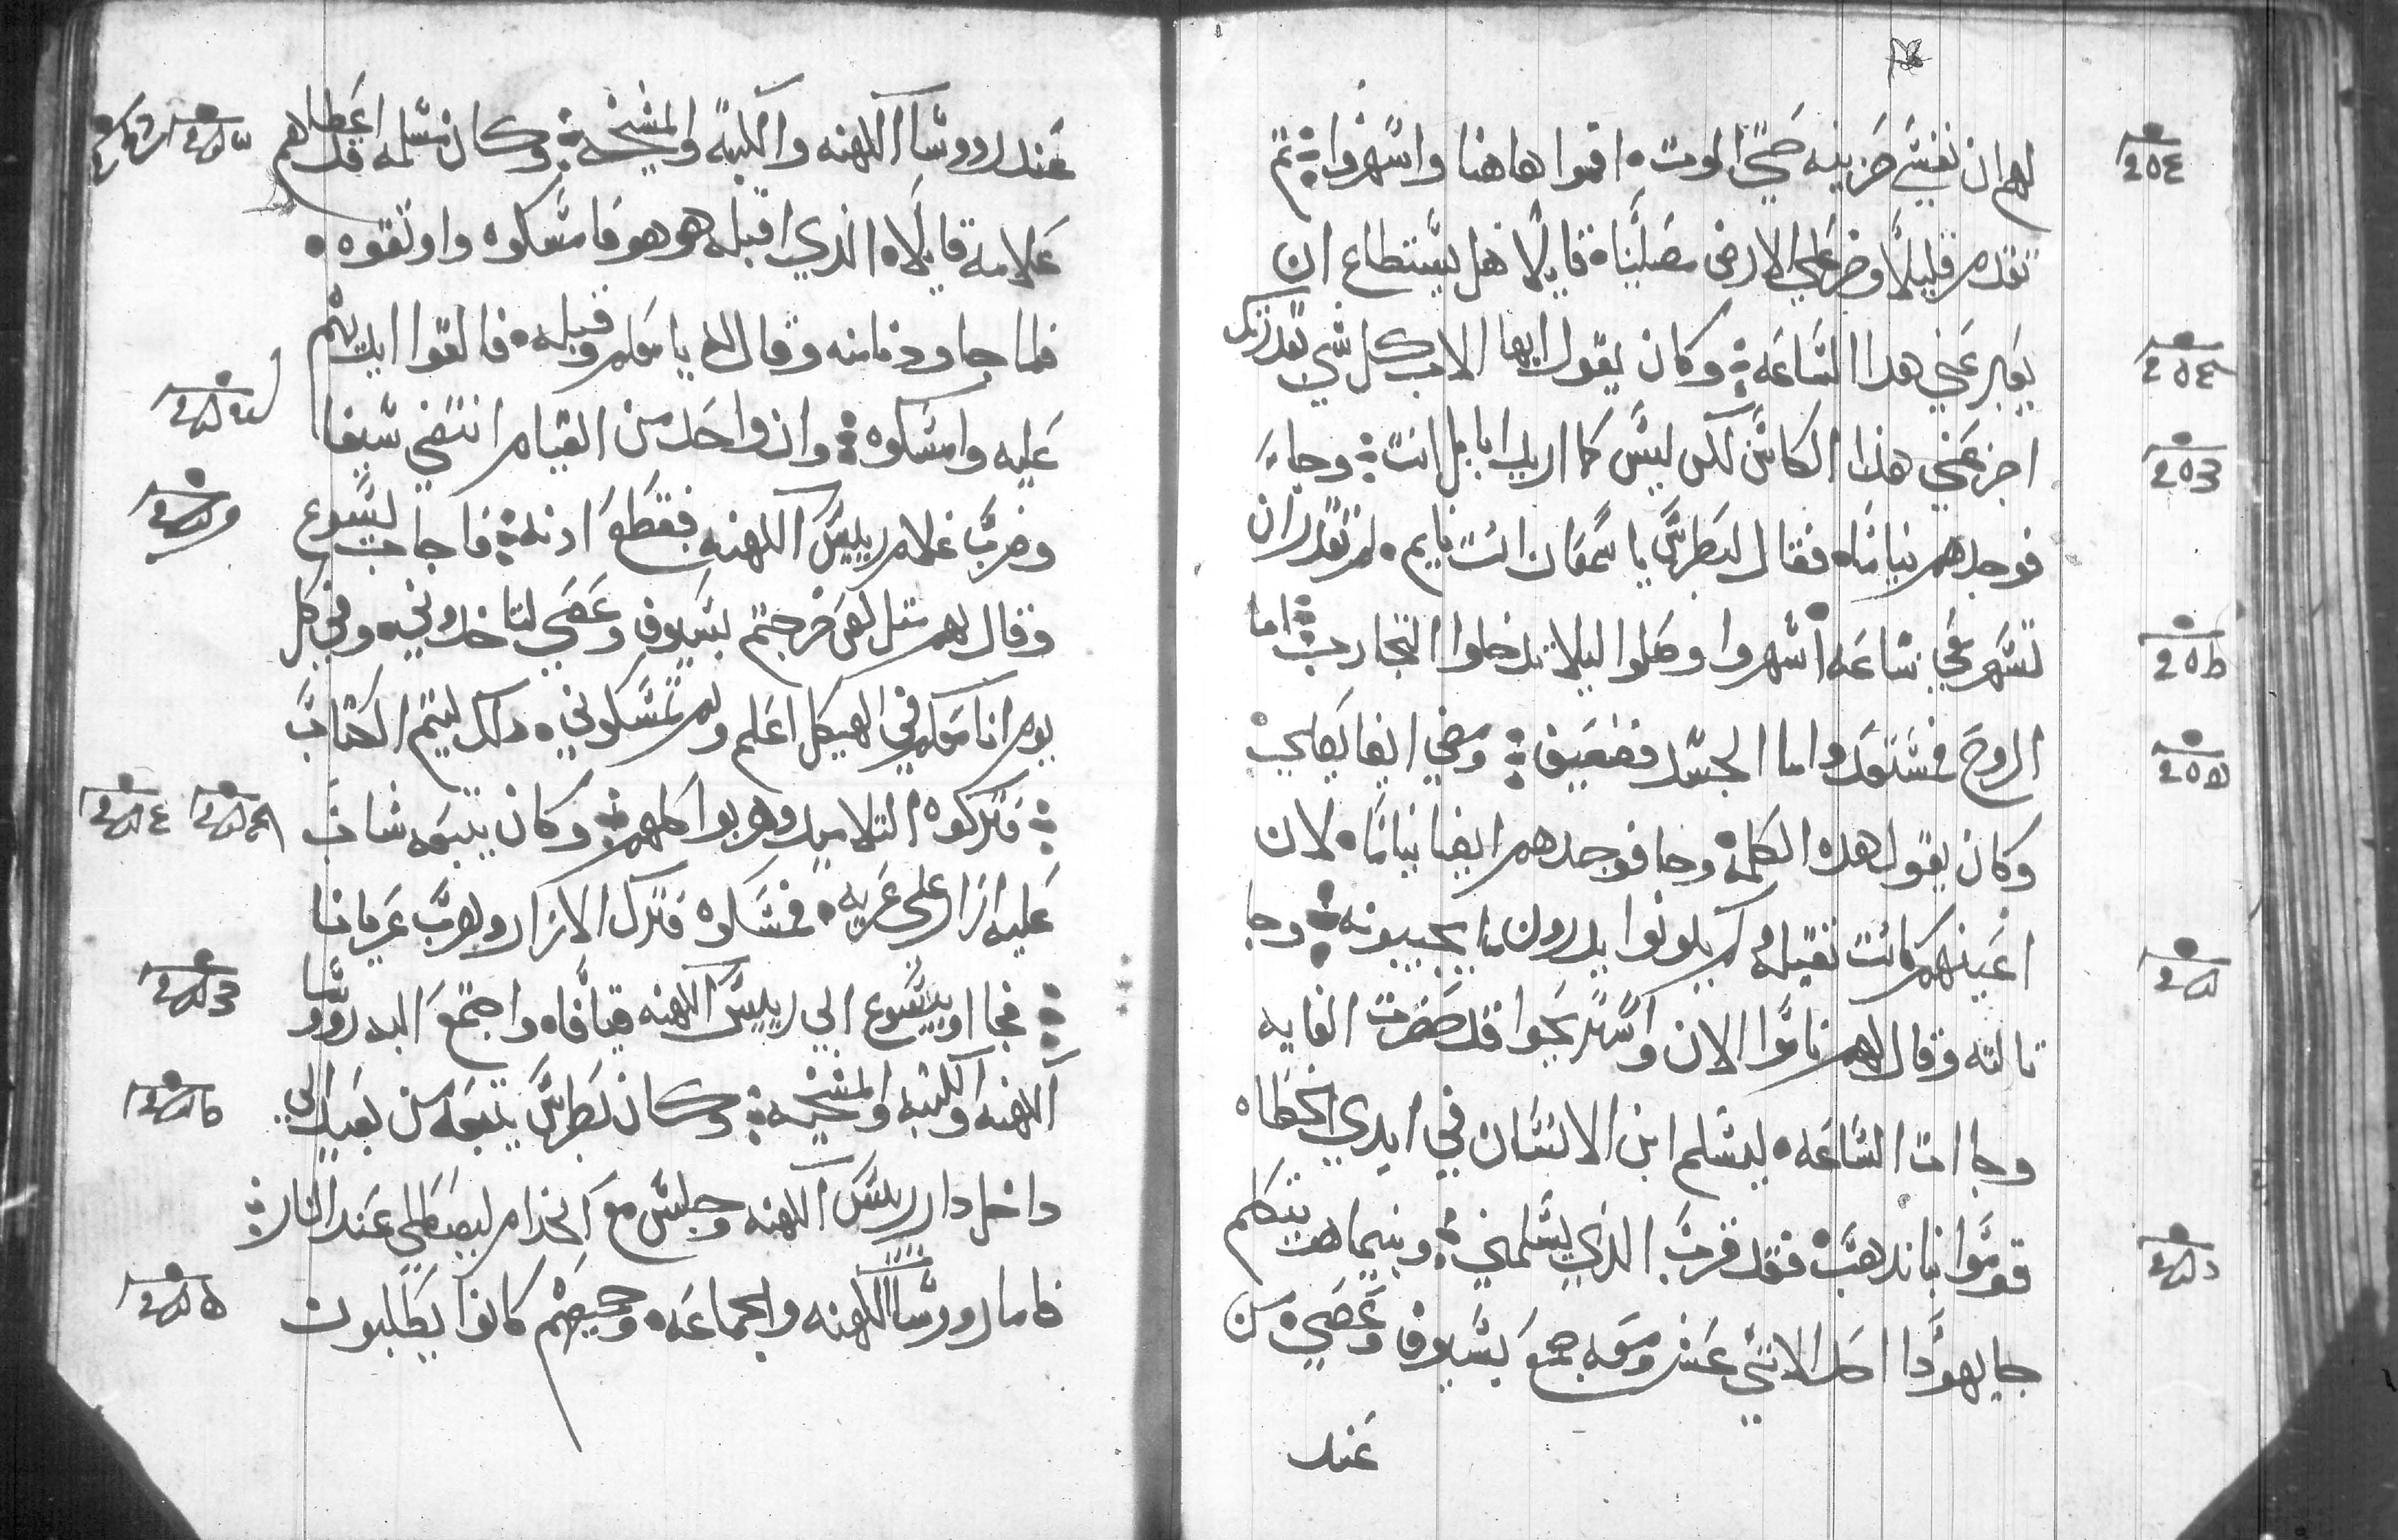 لهم ان نفسي حزينه حتي الموت ۰ اقموا هاهنا واسهروا ⁘ تم
تقدم قليلًا وخر علي الارض مصليًا ۰ قايلًا هل يستطاع ان
يعبر عني هدا الساعه ⁘ وكان يقول ايها الاب كل شي بقدرتك
اجز عني هذا الكاس لكن ليس كما اريد انا بل انت ⁘ وجا
فوجدهم نيامًا ۰ فقال لبطرس يا سمعان انت نايم ۰ لم تقدر ان
تسهر معي ساعه اسهروا وصلوا ليلا تدخلوا التجارب ⁘ اما
الروح فمستعد واما الجسد فضعيف ⁘ ومضي ايضا يصلي
وكان يقول هده الكلمة وجا فوجدهم ايضا نيامًا ۰ لان
اعينهم كانت تقيله ولم يكونوا يدرون ما يجيبونه ⁘ وجا
تالته وقال لهم ناموا الان واستريحوا قد حضرت الغايه
وجاات الساعه ۰ ليسلم ابن الانسان في ايدي الخطاه
قوموا بنا ندهب فقد قرب الذي يسلمني ⁘ وبينما هو يتكلم
جا يهودا احد الاتني عشر ومعه جمع بسيوف وعصي ۰ من
عند
عند رووسا الكهنه والكتبة والمشيخه ⁘ وكان مسلمه قد اعطاهم
علامة قايلًا ۰ الذي اقبله هو هو فامسكوه واوتقوه ۰
فلما جا ودنا منه وقال له يا معلم وقبله ۰ فالقوا ايديهم
عليه وامسكوه ⁘ وان واحد من القيام انتضي سيفا
وضرب غلام رييس الكهنه فقطع ادنه ⁘ فاجاب يسوع
وقال لهم متل لص خرجتم بسيوف وعصي لتاخدوني ۰ وفي كل
يوم انا معكم في الهيكل اعلم ولم تمسكوني ۰ دلك ليتم الكتاب
⁘ فتركوه التلاميد وهربوا كلهم ⁘ وكان يتبعه شاب
عليه ازار علي عريه ۰ فمسكوه فترك الازار وهرب عريانا
⁘ فجااو بيسوع الي رييس الكهنه قيافا ۰ واجتمع اليه رووسا
الكهنه والكتبه والمشيخه ⁘ وكان بطرس يتبعه من بعيد الي
داخل دار رييس الكهنه وجلس مع الخدام ليصطلي عند النار ⁘
فاما رووسا الكهنه والجماعه ۰ وجميعهم كانوا يطلبون